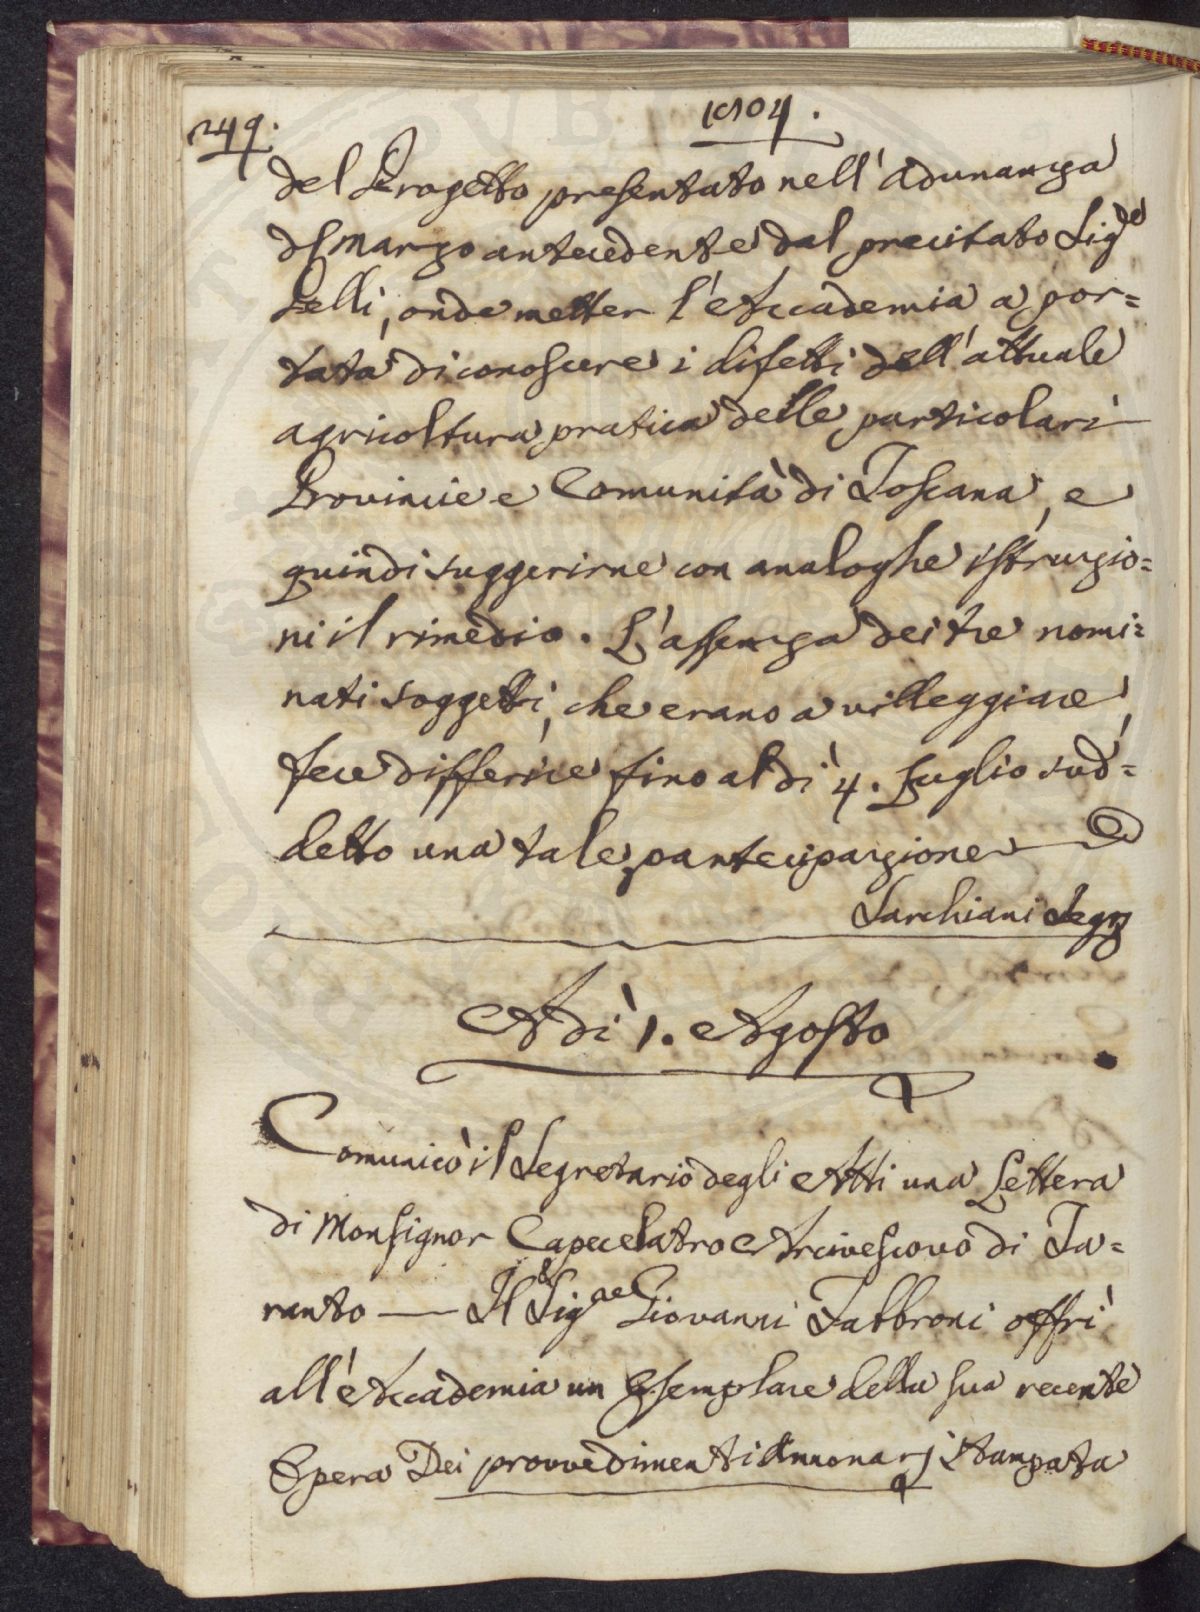 249.
1804.
del Progetto presentato nell'Adunanza
di Marzo antecedente dal precitato Sig.re
Zelli, onde metter l'Accademia a por=
tata di conoscere i difetti dell'attuale
agricoltura pratica delle particolari
Provincie e Comunità di Toscana, e
quindi suggerirne con analoghe istruzio=
ni il rimedio. L'assenza dei tre nomi=
nati soggetti, che erano a villeggiare,
fece differire fino al dì 4. Luglio sud=
detto una tale partecipazione
Sarchiani Segr.
Adì 1. Agosto
Comunicò il Segretario degli Atti una Lettera
di Monsignor Capecelatro Arcivescovo di Ta=
ranto — Il Sig.re Giovanni Fabbroni offrì
all'Accademia un Esemplare della sua recente
Opera Dei provvedimenti Annonarj stampata